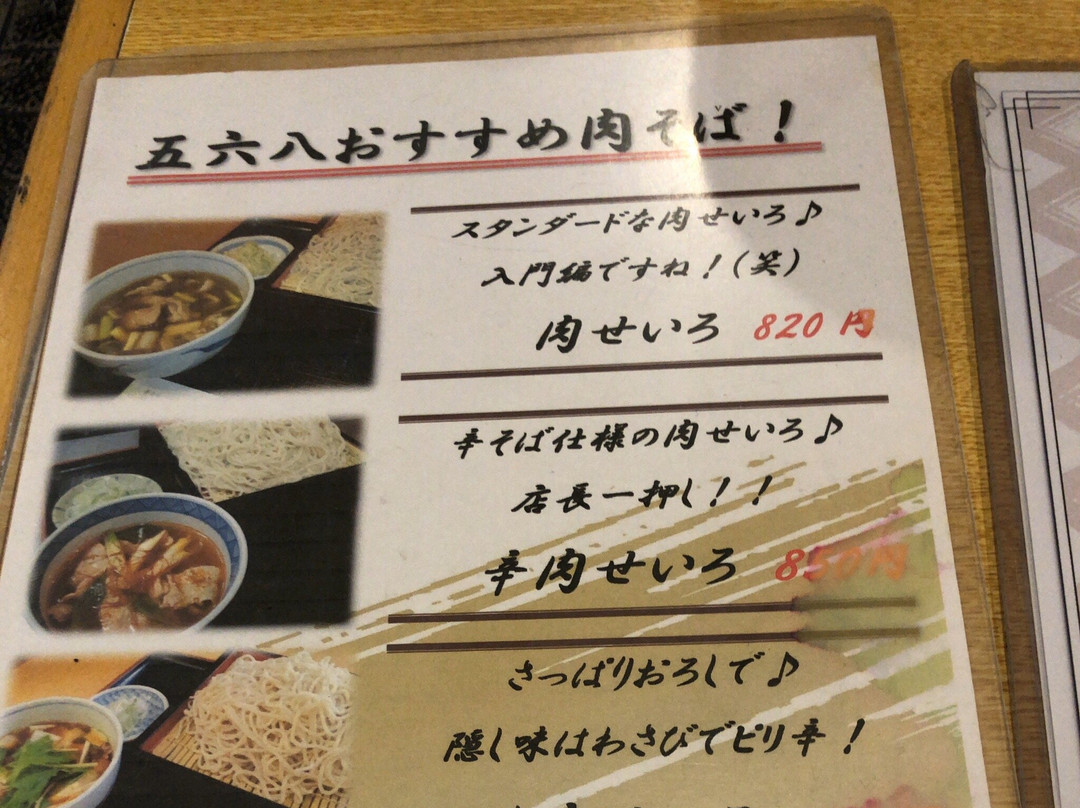 五六八おすすめ肉そば！
スタンダードな肉せいろ♪
入門編ですね！(笑)
肉せいろ 820円
辛そば仕様の肉せいろ♪
店長一押し！！
辛肉せいろ 850円
さっぱりおろしで♪
隠し味はわさびでピリ辛！